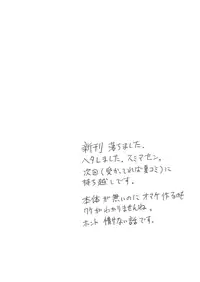 新刊 落ちました。
ヘタレました。スミマセン。
次回(受かってれば夏コミ)に
持ち越しです。
本体が無いのにオマケ作る時
ワケがわかりませんね。
ホント 情けない話です。